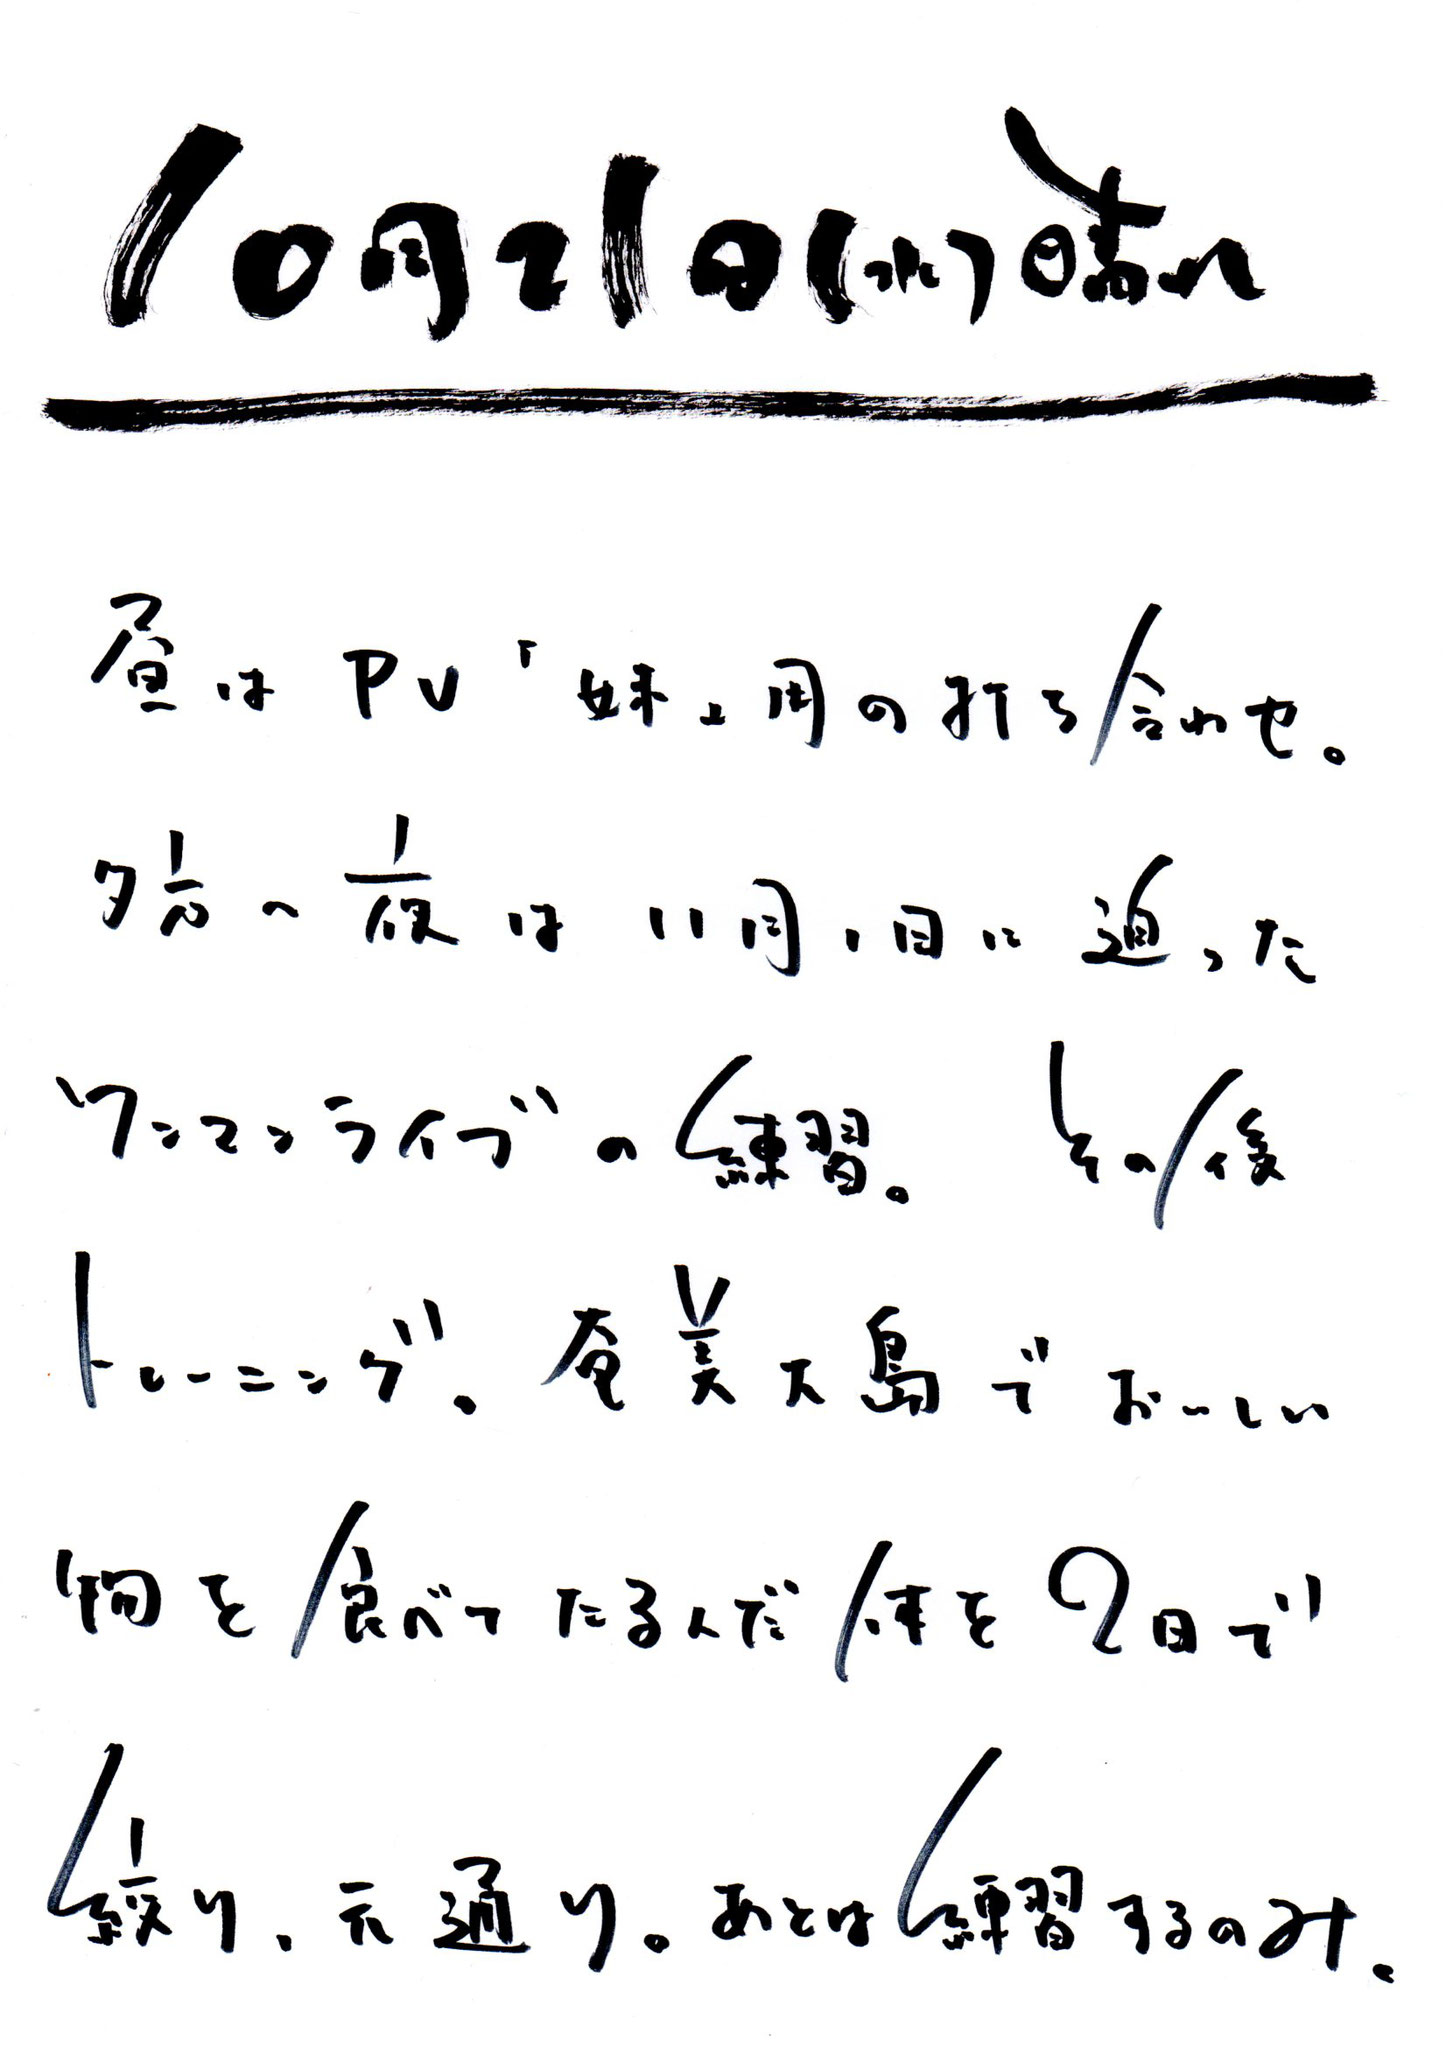 10月21日(水)晴れ
昼はPV「妹」用の打ち合わせ。
夕方〜夜は11月1日に迫った
ワンマンライブの練習。その後
トレーニング。奄美大島でおいしい
物を食べてたるんだ体を2日で
絞り、元通り。あとは練習するのみ。